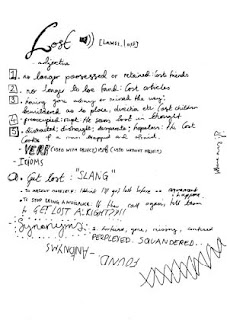 Lost [lawst, lost]
- adjective
1. no longer possessed or retained: Lost friends
2. no longer to be found: Lost articles
3. having gone astray or missed the way;
bewildered as to place, direction etc: Lost children
4. preoccupied; rapt: He seems lost in thought
5. distracted; distraught; desperate; hopeless: the Lost
of a man trapped and afraid.
- VERB (USED WITH OBJECT) (USED WITHOUT OBJECT)
- IDIOMS
a. Get lost: "SLANG"
TO ABSENT ONESELF: I think I'll get lost before an
happens
TO STOP BEING A NUISANCE: If they call again, tell them
to GET LOST ALRIGHT??!!
Synonyms: 1. forfeited, gone, missing, confused
PERPLEXED. SQUANDERED...
- ANONYMS
FOUND